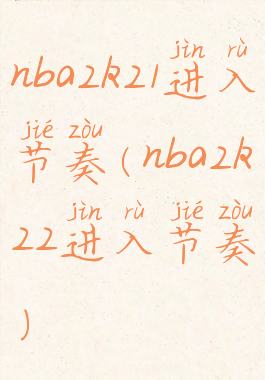 jìn rù
nba2k21进入
jié zòu
节奏(nba2k
jìn rù jié zòu
22进入节奏
)